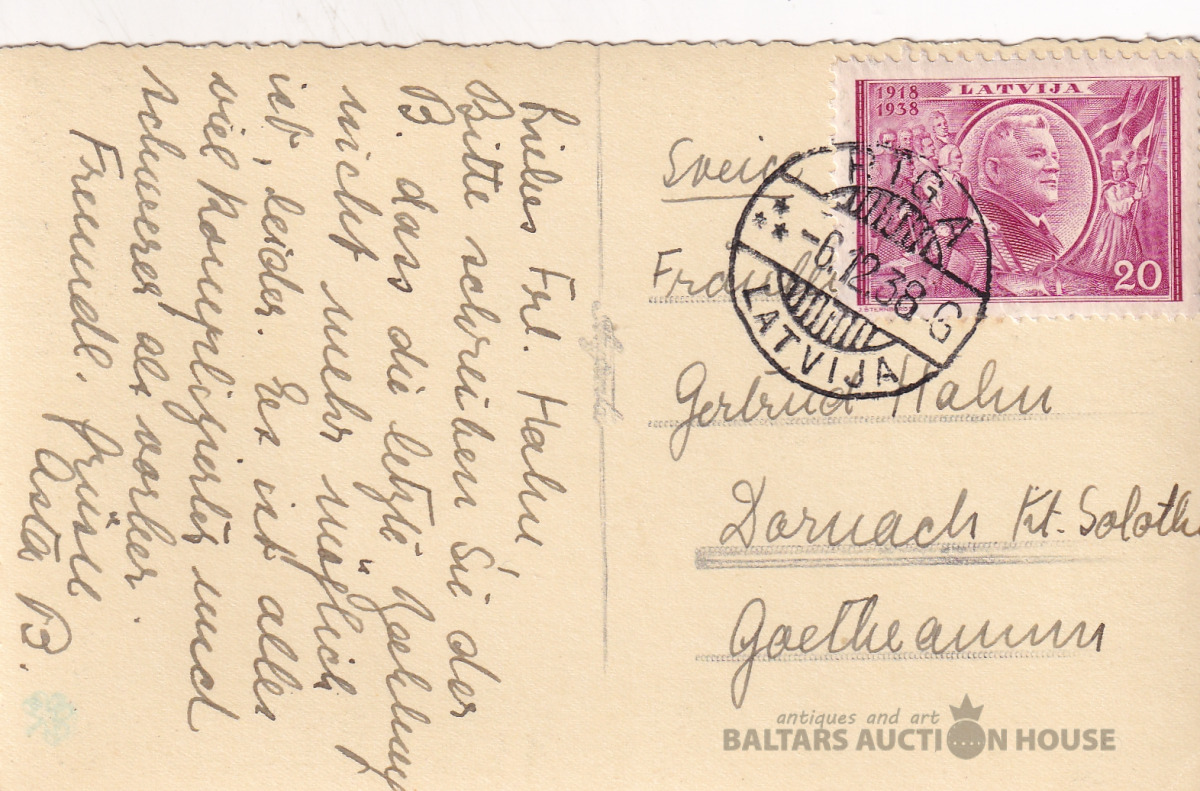 Liebes Frl. Hahn
Bitte schreiben Sie der
B. dass die letzte Zahlung
nicht mehr möglich
ist, leider. Es ist alles
viel komplizierter und
schwerer als vorher.
Freundl. Grüsse
Asta B.
Sveic
Fräulein
Gertrud Hahn
Dornach Kt. Soloth
Goetheanum
1918 LATVIJA
1938
20
RIGA
-6.12.38-G
LATVIJA
antiques and art
BALTARS AUCTION HOUSE